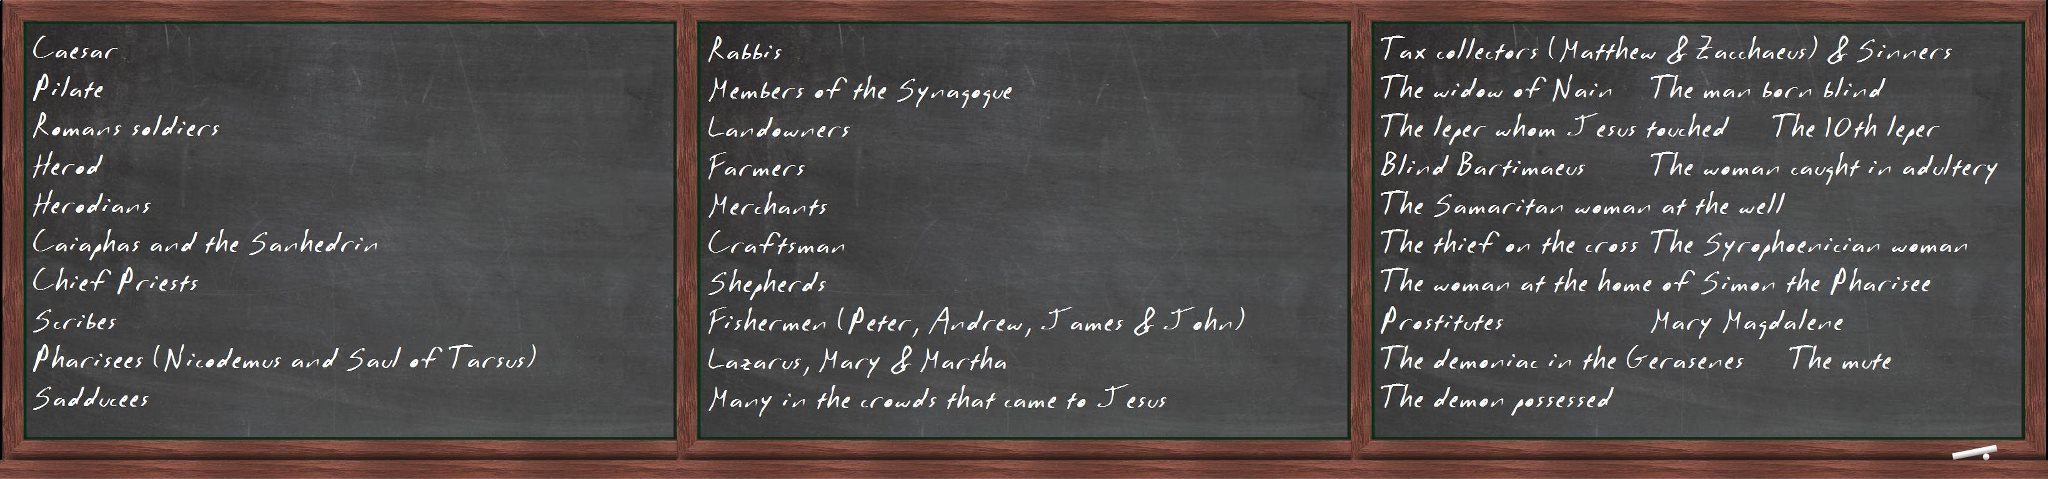 Caesar
Pilate
Romans soldiers
Herod
Herodians
Caiaphas and the Sanhedrin
Chief Priests
Scribes
Pharisees (Nicodemus and Saul of Tarsus)
Sadducees
Rabbis
Members of the Synagogue
Landowners
Farmers
Merchants
Craftsman
Shepherds
Fishermen (Peter, Andrew, James & John)
Lazarus, Mary & Martha
Many in the crowds that came to Jesus
Tax collectors (Matthew & Zacchaeus) & Sinners
The widow of Nain The man born blind
The leper whom Jesus touched The 10th leper
Blind Bartimaeus The woman caught in adultery
The Samaritan woman at the well
The thief on the cross The Syrophoenician woman
The woman at the home of Simon the Pharisee
Prostitutes Mary Magdalene
The demoniac in the Gerasenes The mute
The demon possessed